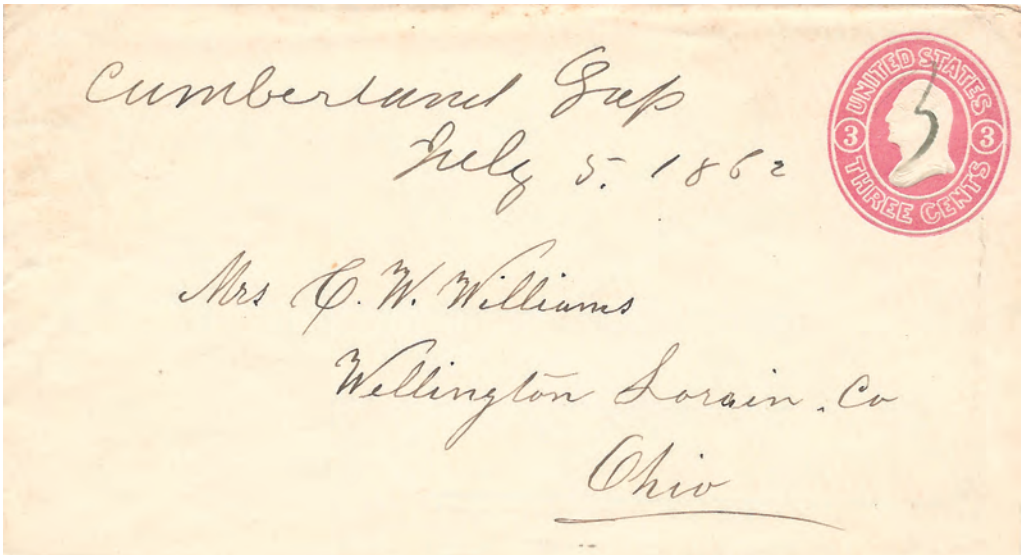 Cumberland Gap
July 5. 1862
UNITED STATES
3 3
THREE CENTS
Mrs C. W. Williams
Wellington Lorain. Co
Ohio